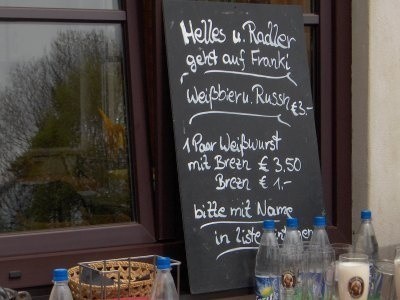 Helles u. Radler
geht auf Franki
Weißbier u. Russn
€3.-
1 Paar Weißwurst
mit Brezn € 3,50
Brezn € 1.-
bitte mit Name
in Liste